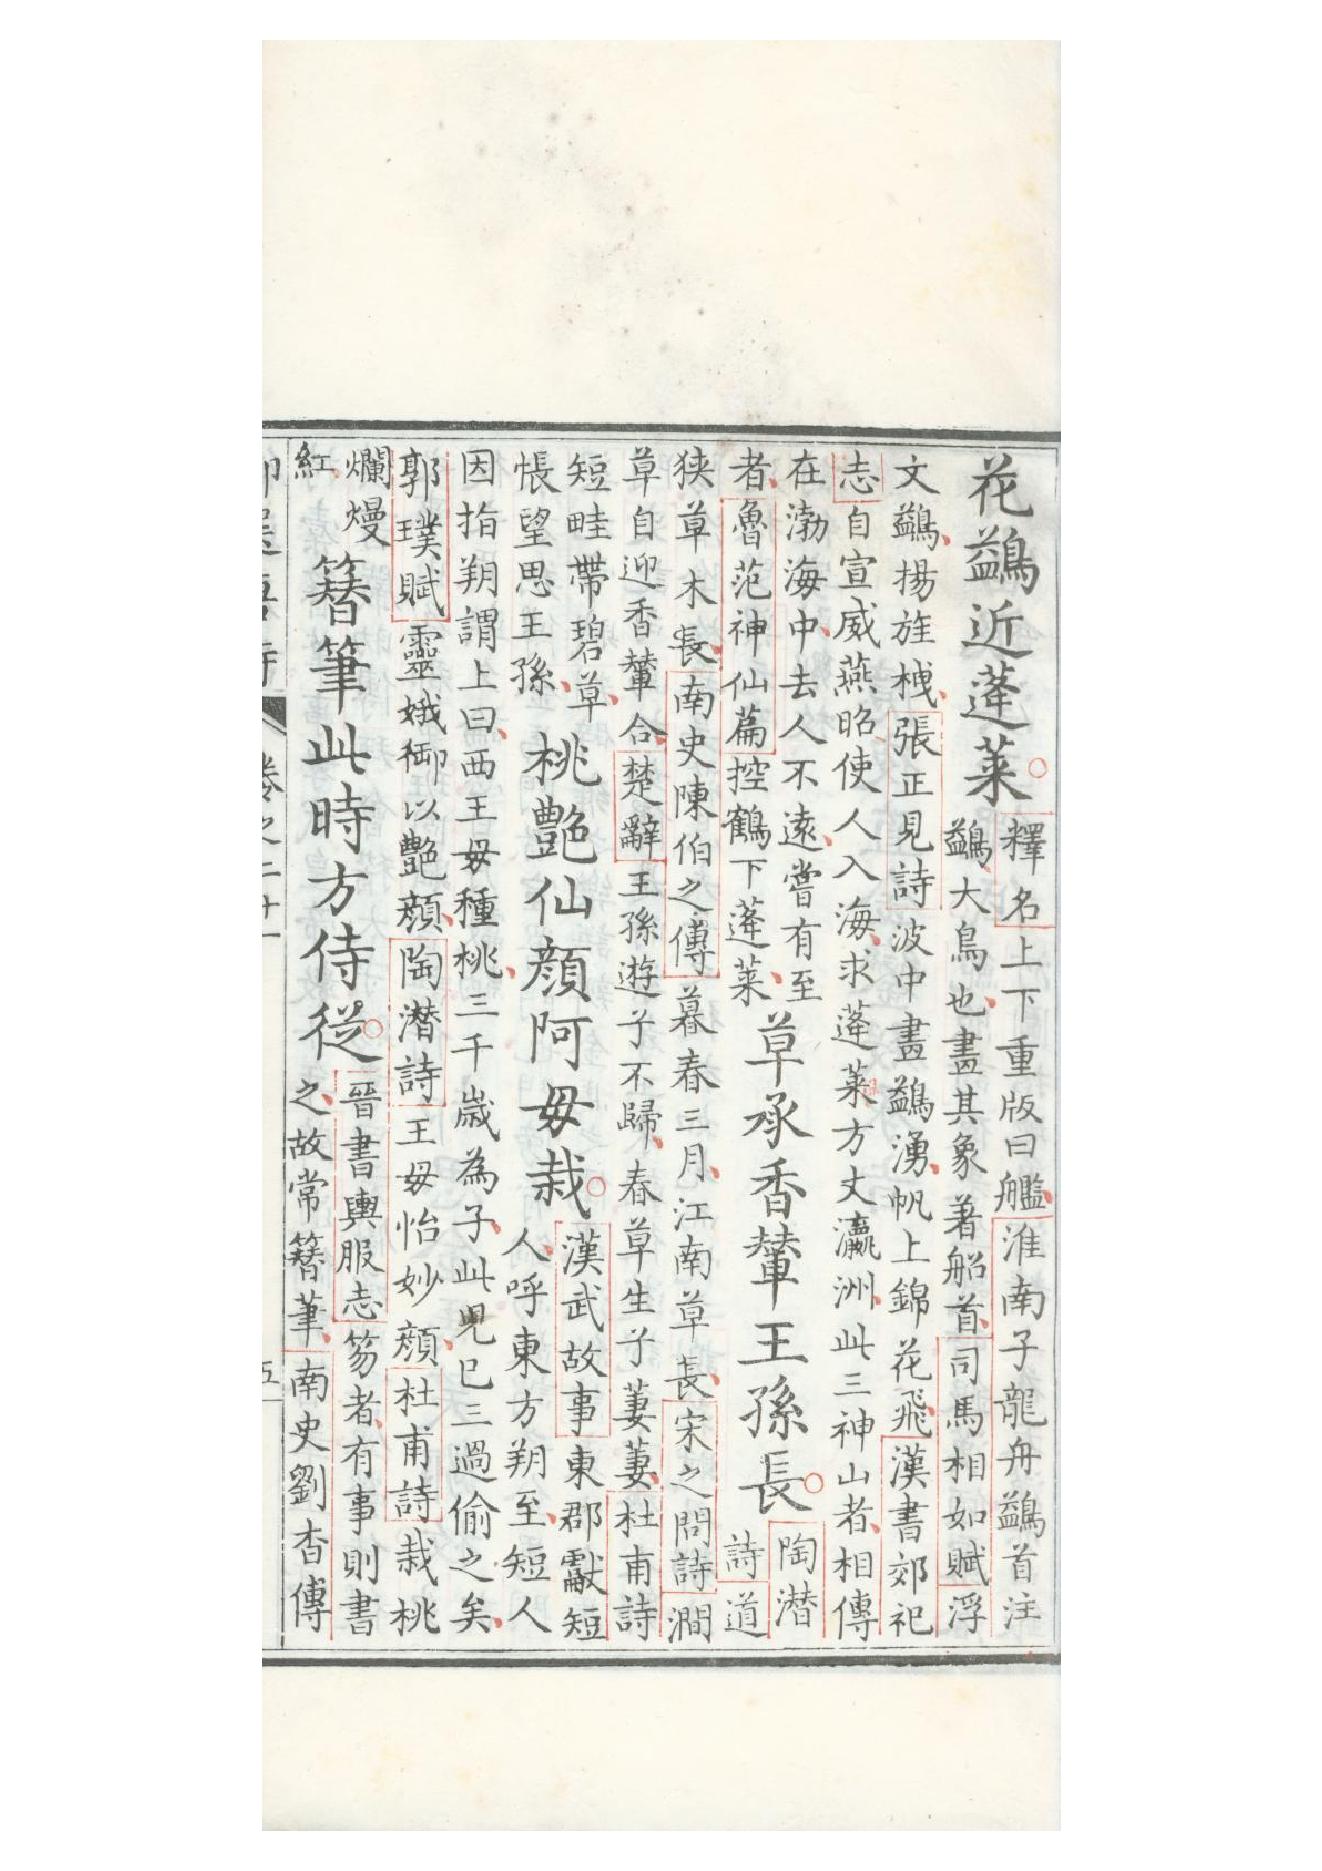 花鷁近蓬萊
釋名上下重版曰艦淮南子龍舟鷁首注
鷁大鳥也畫其象著船首司馬相如賦浮
文鷁揚旌栧張正見詩波中畫鷁湧帆上錦花飛漢書郊祀
志自宣威燕昭使人入海求蓬萊方丈瀛洲此三神山者相傳
在渤海中去人不遠嘗有至
者魯范神仙篇控鶴下蓬萊
草承香輦王孫長
陶潛
詩道
狹草木長南史陳伯之傳暮春三月江南草長宋之問詩澗
草自迎香輦合楚辭王孫遊子不歸春草生子萋萋杜甫詩
短畦帶碧草
悵望思王孫
桃艷仙顏阿毋栽
漢武故事東郡獻短
人呼東方朔至短人
因指朔謂上曰西王毋種桃三千歲為子此兒巳三過偷之矣
郭璞賦靈娥御以艷顏陶潛詩王毋怡妙顏杜甫詩栽桃
爛熳
紅
簪筆此時方侍從
晉書輿服志笏者有事則書
之故常簪筆南史劉杳傳
卷之二十一
五